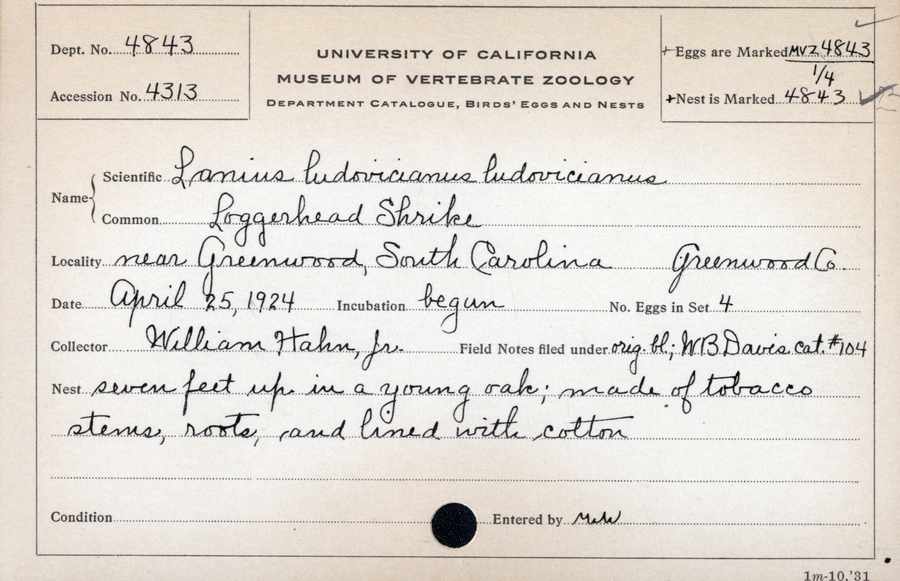 Dept. No. 4843
Accession No. 4313
UNIVERSITY OF CALIFORNIA
MUSEUM OF VERTEBRATE ZOOLOGY
DEPARTMENT CATALOGUE, BIRDS' EGGS AND NESTS
+Eggs are Marked MVZ 4843
1/4
+Nest is Marked 4843
Name
Scientific Lanius ludovicianus ludovicianus
Common Loggerhead Shrike
Locality near Greenwood, South Carolina Greenwood Co.
Date April 25, 1924 Incubation begun No. Eggs in Set 4
Collector William Hahn, Jr. Field Notes filed under orig. bl; WB Davis cat. #104
Nest seven feet up in a young oak; made of tobacco
stems, roots, and lined with cotton
Condition Entered by
1m-10,'31